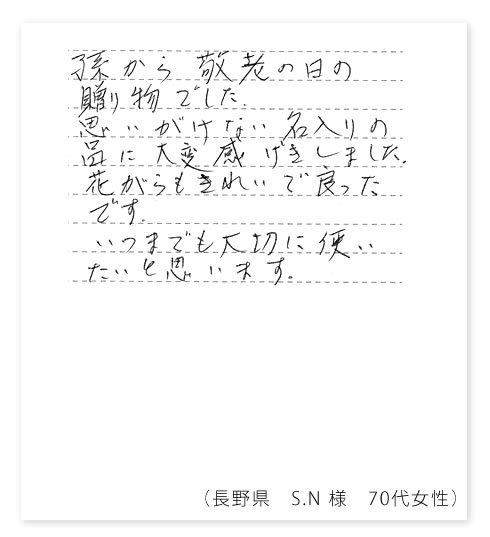 孫から敬老の日の
贈り物でした.
思いがけない名入りの
品に大変感げきしました.
花がらもきれいで良った
です.
いつまでも大切に使い
たいと思います.
（長野県　S.N 様　70代女性）